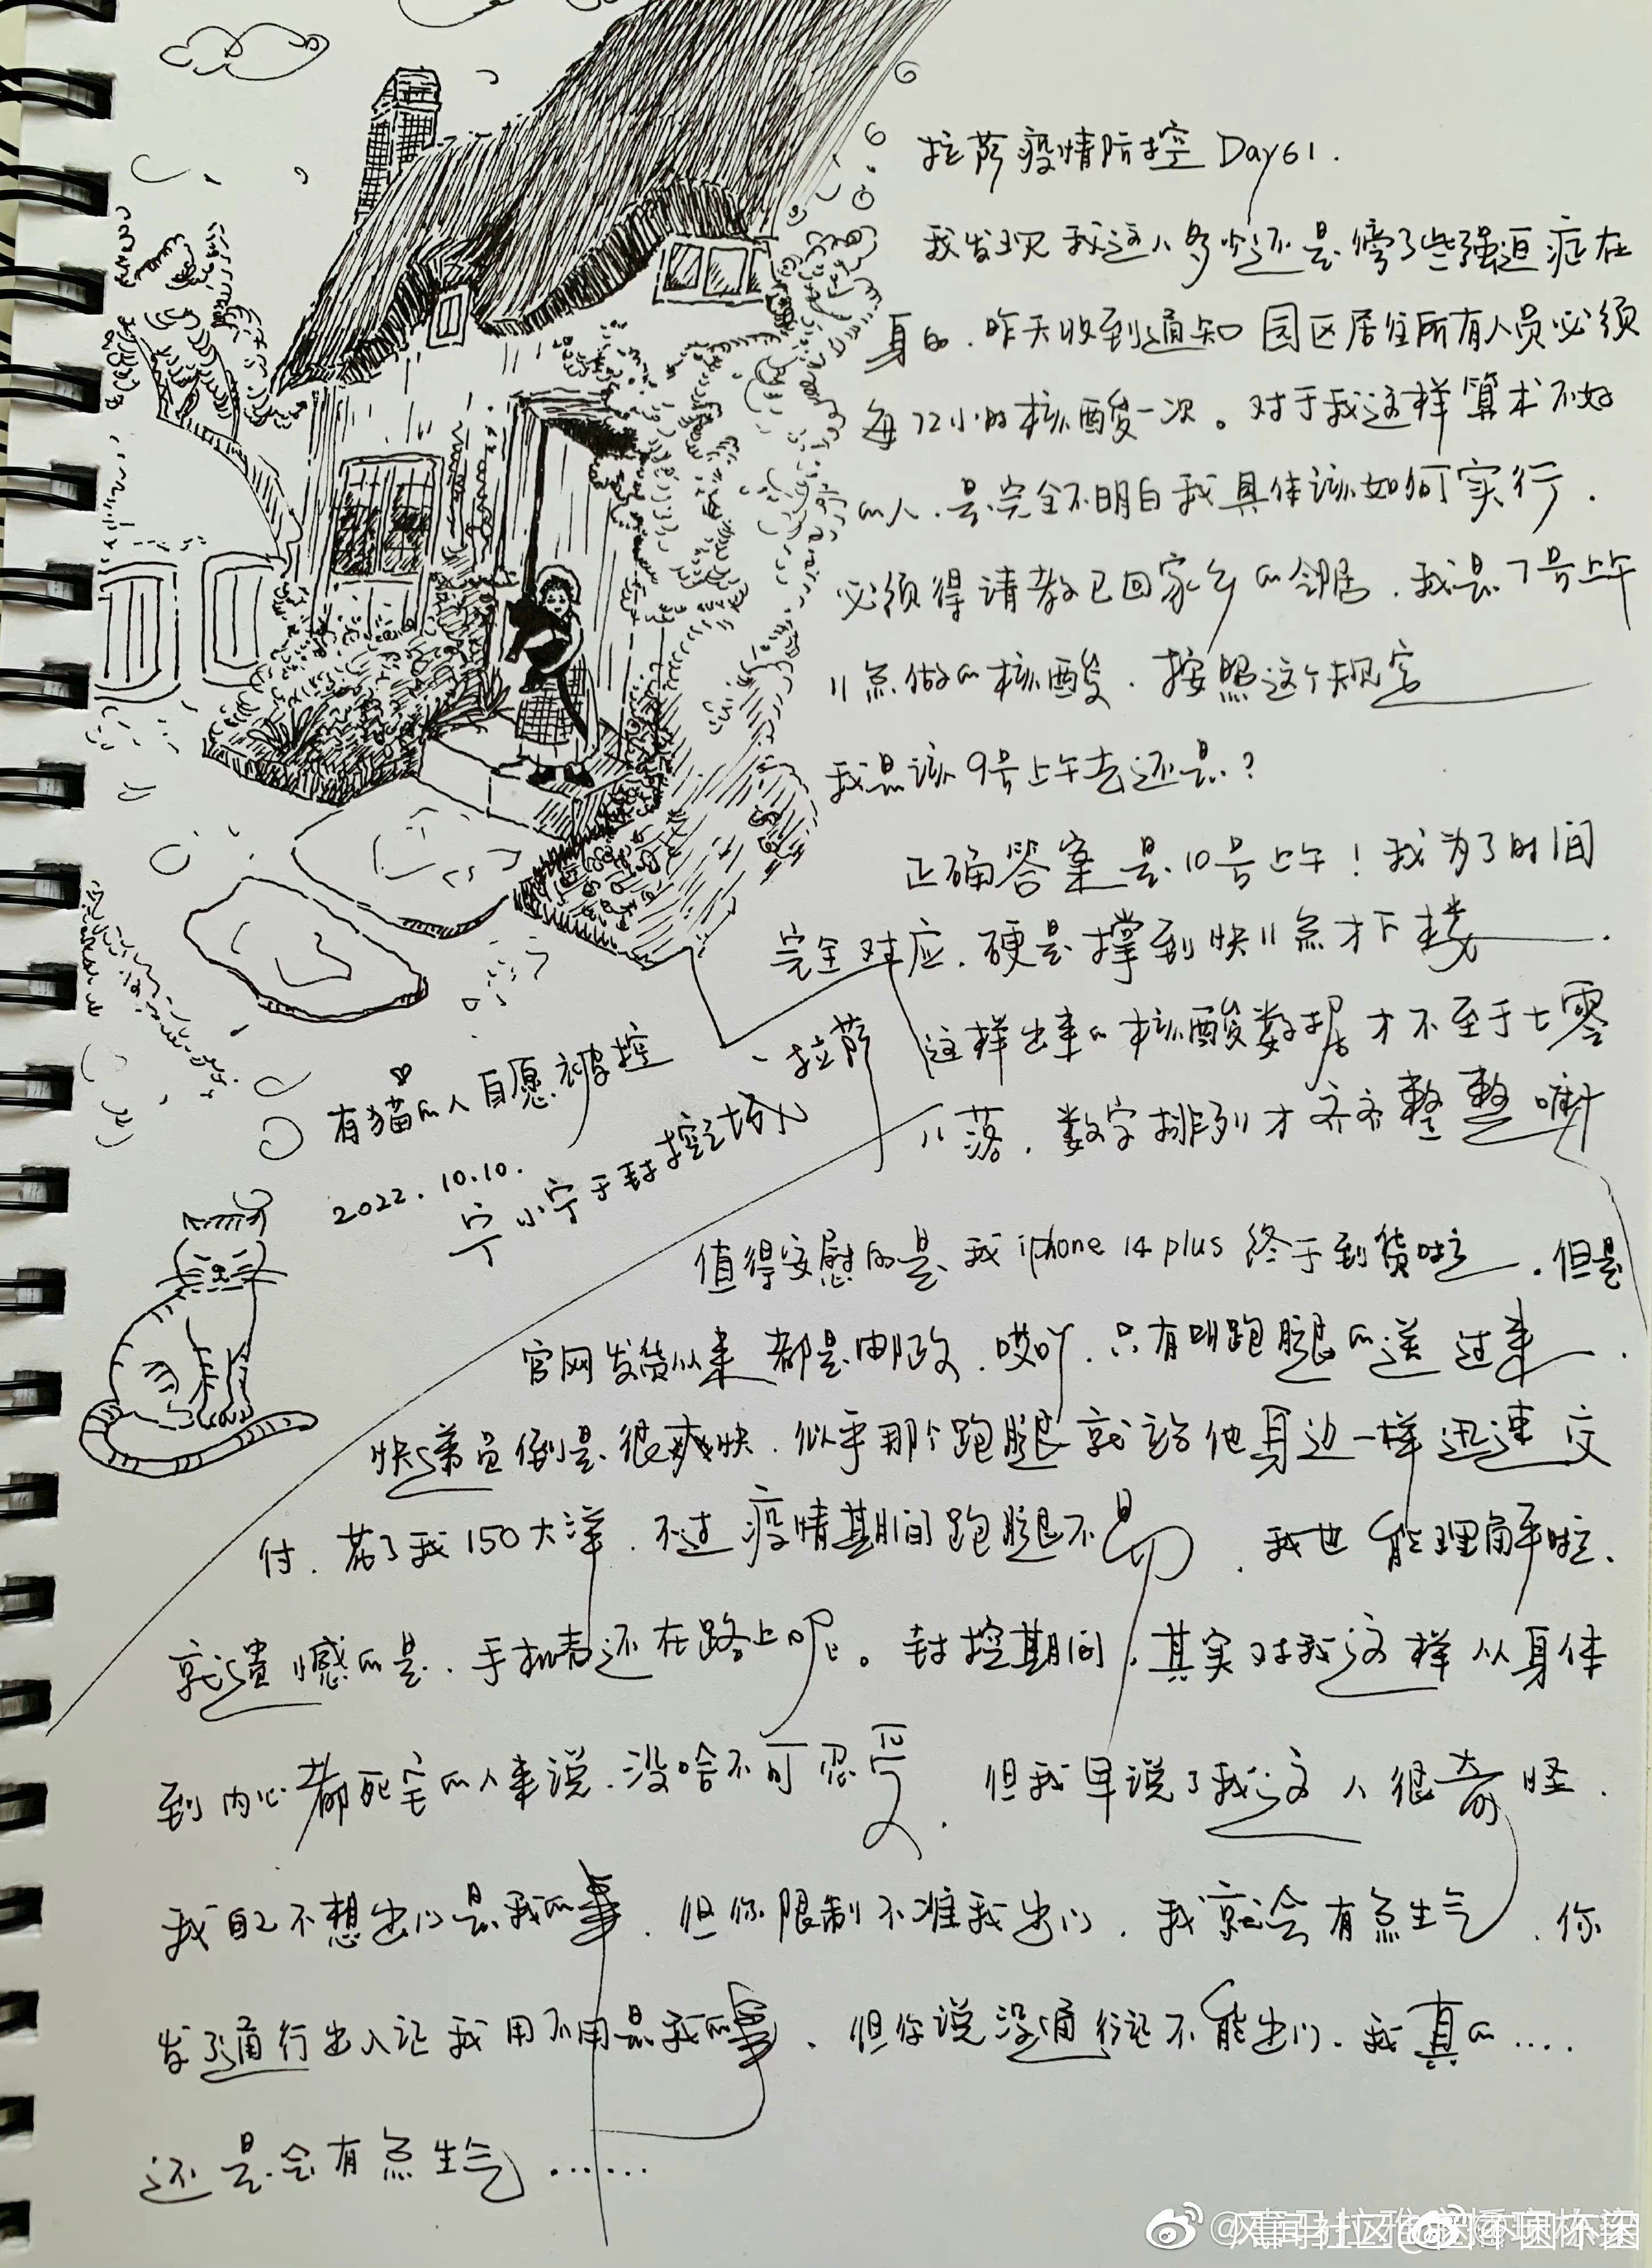 拉萨疫情防控 Day61.
我发现我这人多少还是得了些强迫症在
身的.昨天收到通知园区居住所有人员必须
每72小时核酸一次。对于我这样算术不好
的人.是完全不明白我具体该如何实行.
必须得请教已回家乡的邻居.我是7号上午
11点做的核酸.按照这个规定
我是该9号上午去还是?
正确答案是10号上午!我为了时间
完全对应.硬是撑到快11点才下楼.
这样出来的核酸数据才不至于七零
八落.数字排列才齐齐整整嘛
有猫的人自愿被控
2022.10.10.
宁小宁于封控之城
拉萨
值得安慰的是我iphone 14 plus 终于到货啦.但是
官网发货从来都是邮政.哎吖.只有叫跑腿的送过来.
快递员倒是很爽快.似乎那个跑腿就该在他身边一样迅速交
付.花了我150大洋.不过疫情期间跑腿不易.我也能理解啦.
就遗憾的是.手机壳还在路上呢。封控期间.其实对我这样从身体
到内心都死宅的人来说.没啥不可忍受.但我早说了我这人很奇怪.
我自己不想出门是我的事.但你限制不准我出门.我就会有点生气.你
发了通行出入证我用不用是我的事.但你说没通行证不能出门.我真的....
还是会有点生气......